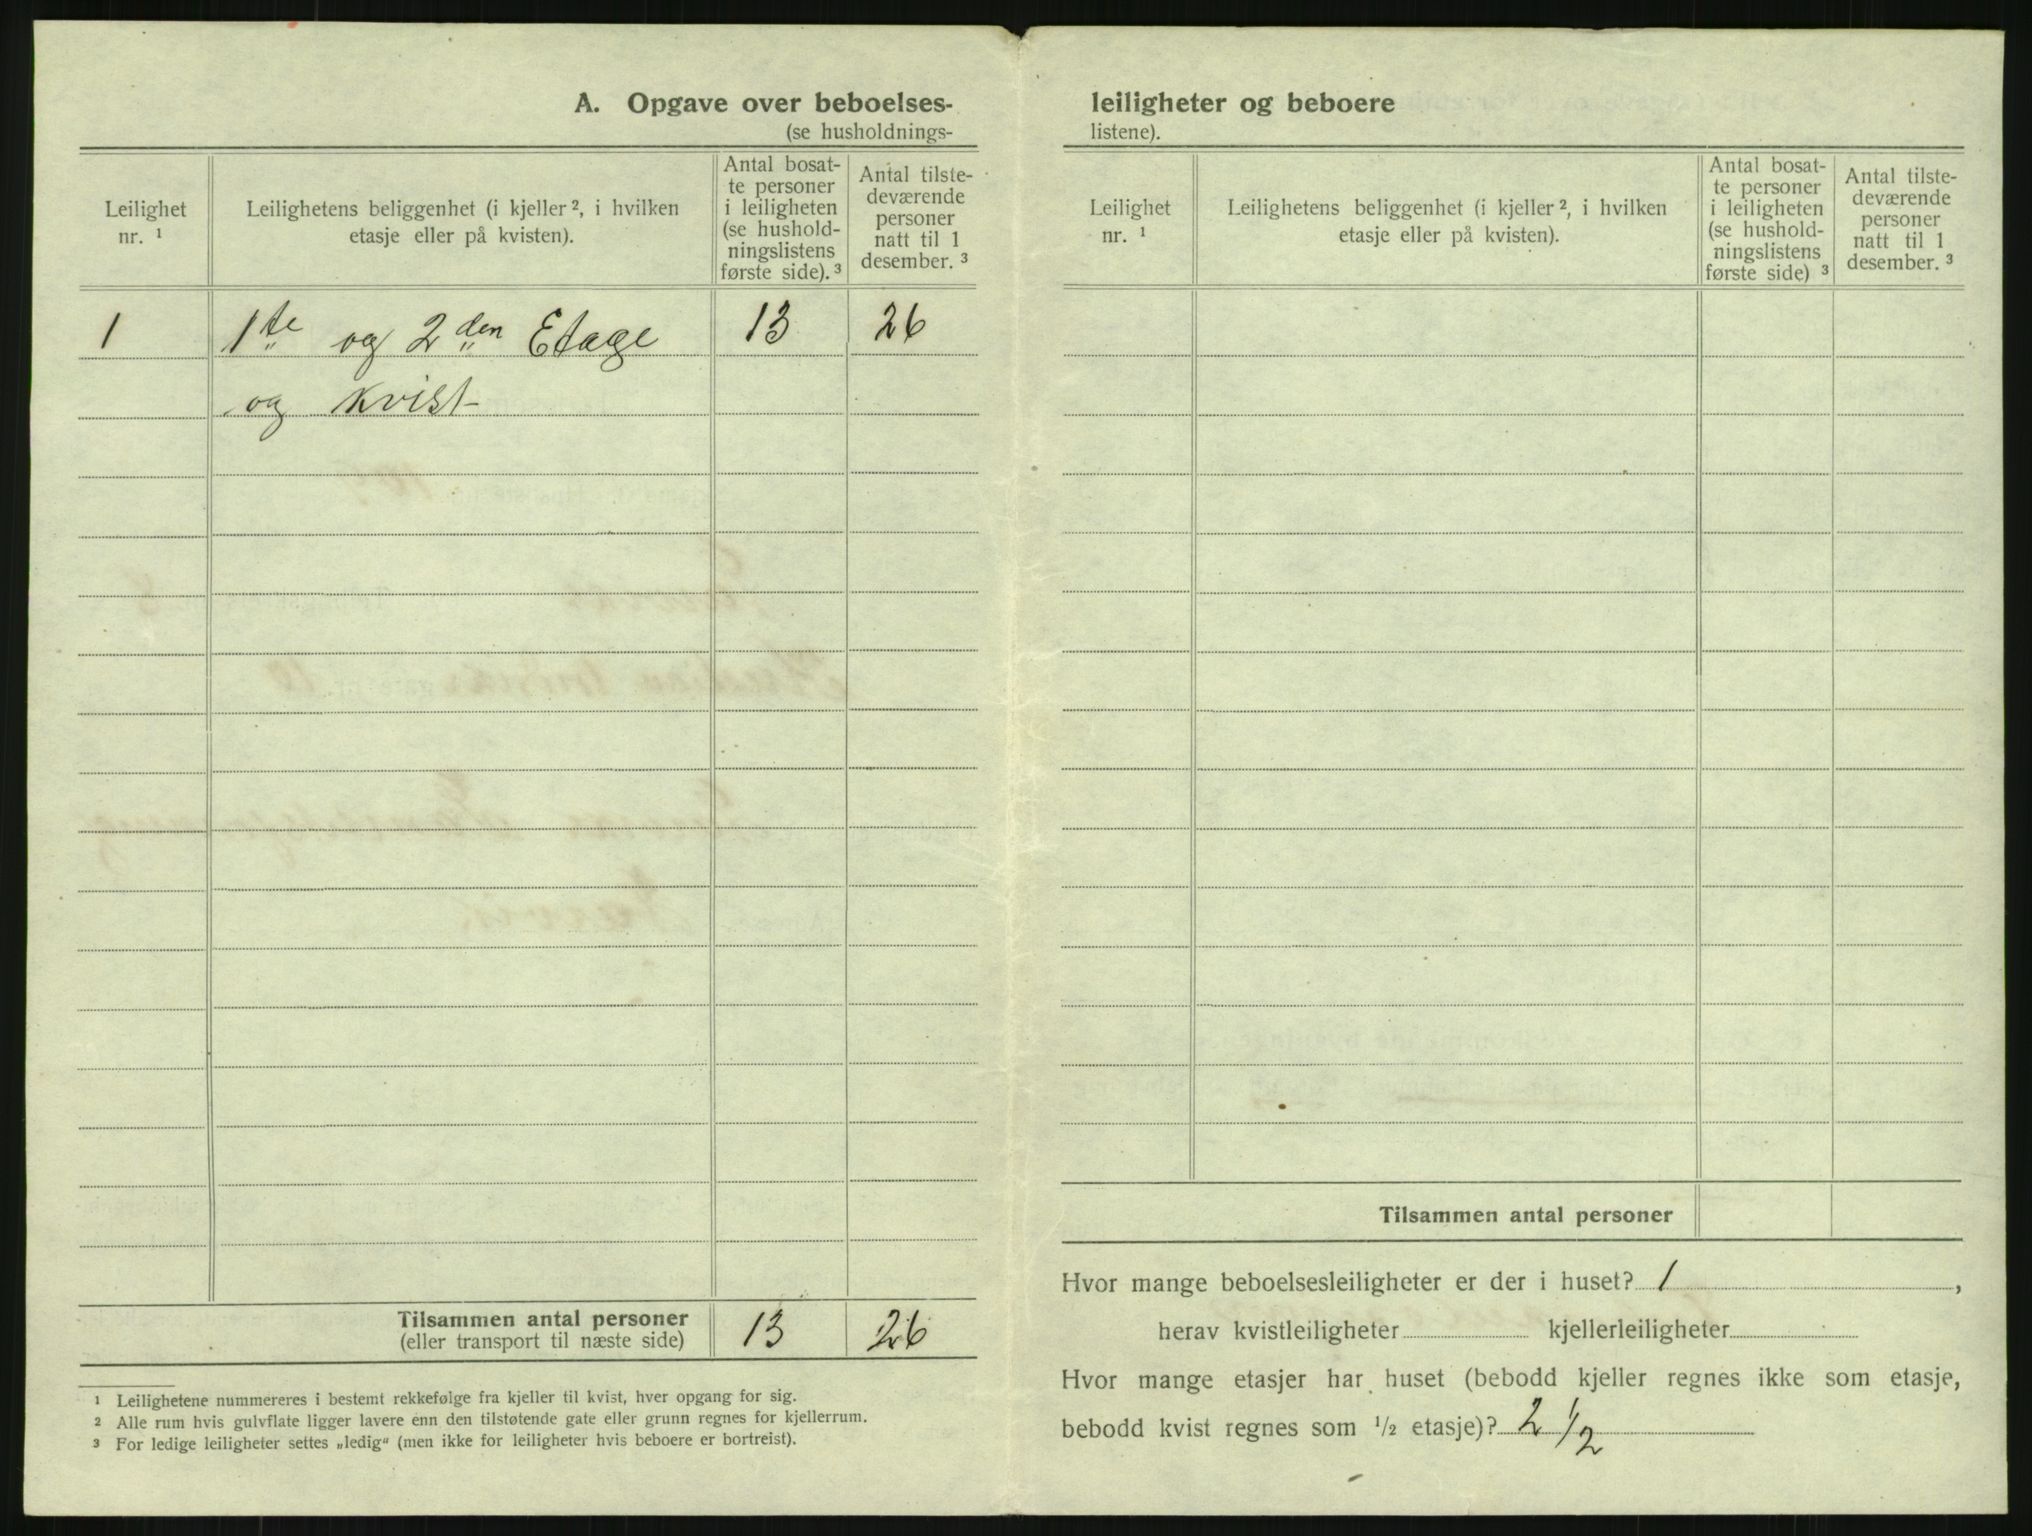 A. Opgave over beboelses-
(se husholdnings-
Leilighet
nr. ¹
Leilighetens beliggenhet (i kjeller ², i hvilken
etasje eller på kvisten).
Antal bosat-
te personer
i leiligheten
(se hushold-
ningslistens
første side). ³
Antal tilste-
deværende
personer
natt til 1
desember. ³
1 1te og 2den Etage 13 26
og Kvist
Tilsammen antal personer
(eller transport til næste side) 13 26
¹ Leilighetene nummereres i bestemt rekkefølge fra kjeller til kvist, hver opgang for sig.
² Alle rum hvis gulvflate ligger lavere enn den tilstøtende gate eller grunn regnes for kjellerrum.
³ For ledige leiligheter settes „ledig“ (men ikke for leiligheter hvis beboere er bortreist).
leiligheter og beboere
listene).
Leilighet
nr. ¹
Leilighetens beliggenhet (i kjeller ², i hvilken
etasje eller på kvisten).
Antal bosat-
te personer
i leiligheten
(se hushold-
ningslistens
første side) ³
Antal tilste-
deværende
personer
natt til 1
desember. ³
Tilsammen antal personer
Hvor mange beboelsesleiligheter er der i huset? 1 ,
herav kvistleiligheter kjellerleiligheter
Hvor mange etasjer har huset (bebodd kjeller regnes ikke som etasje,
bebodd kvist regnes som ½ etasje)? 2 ½